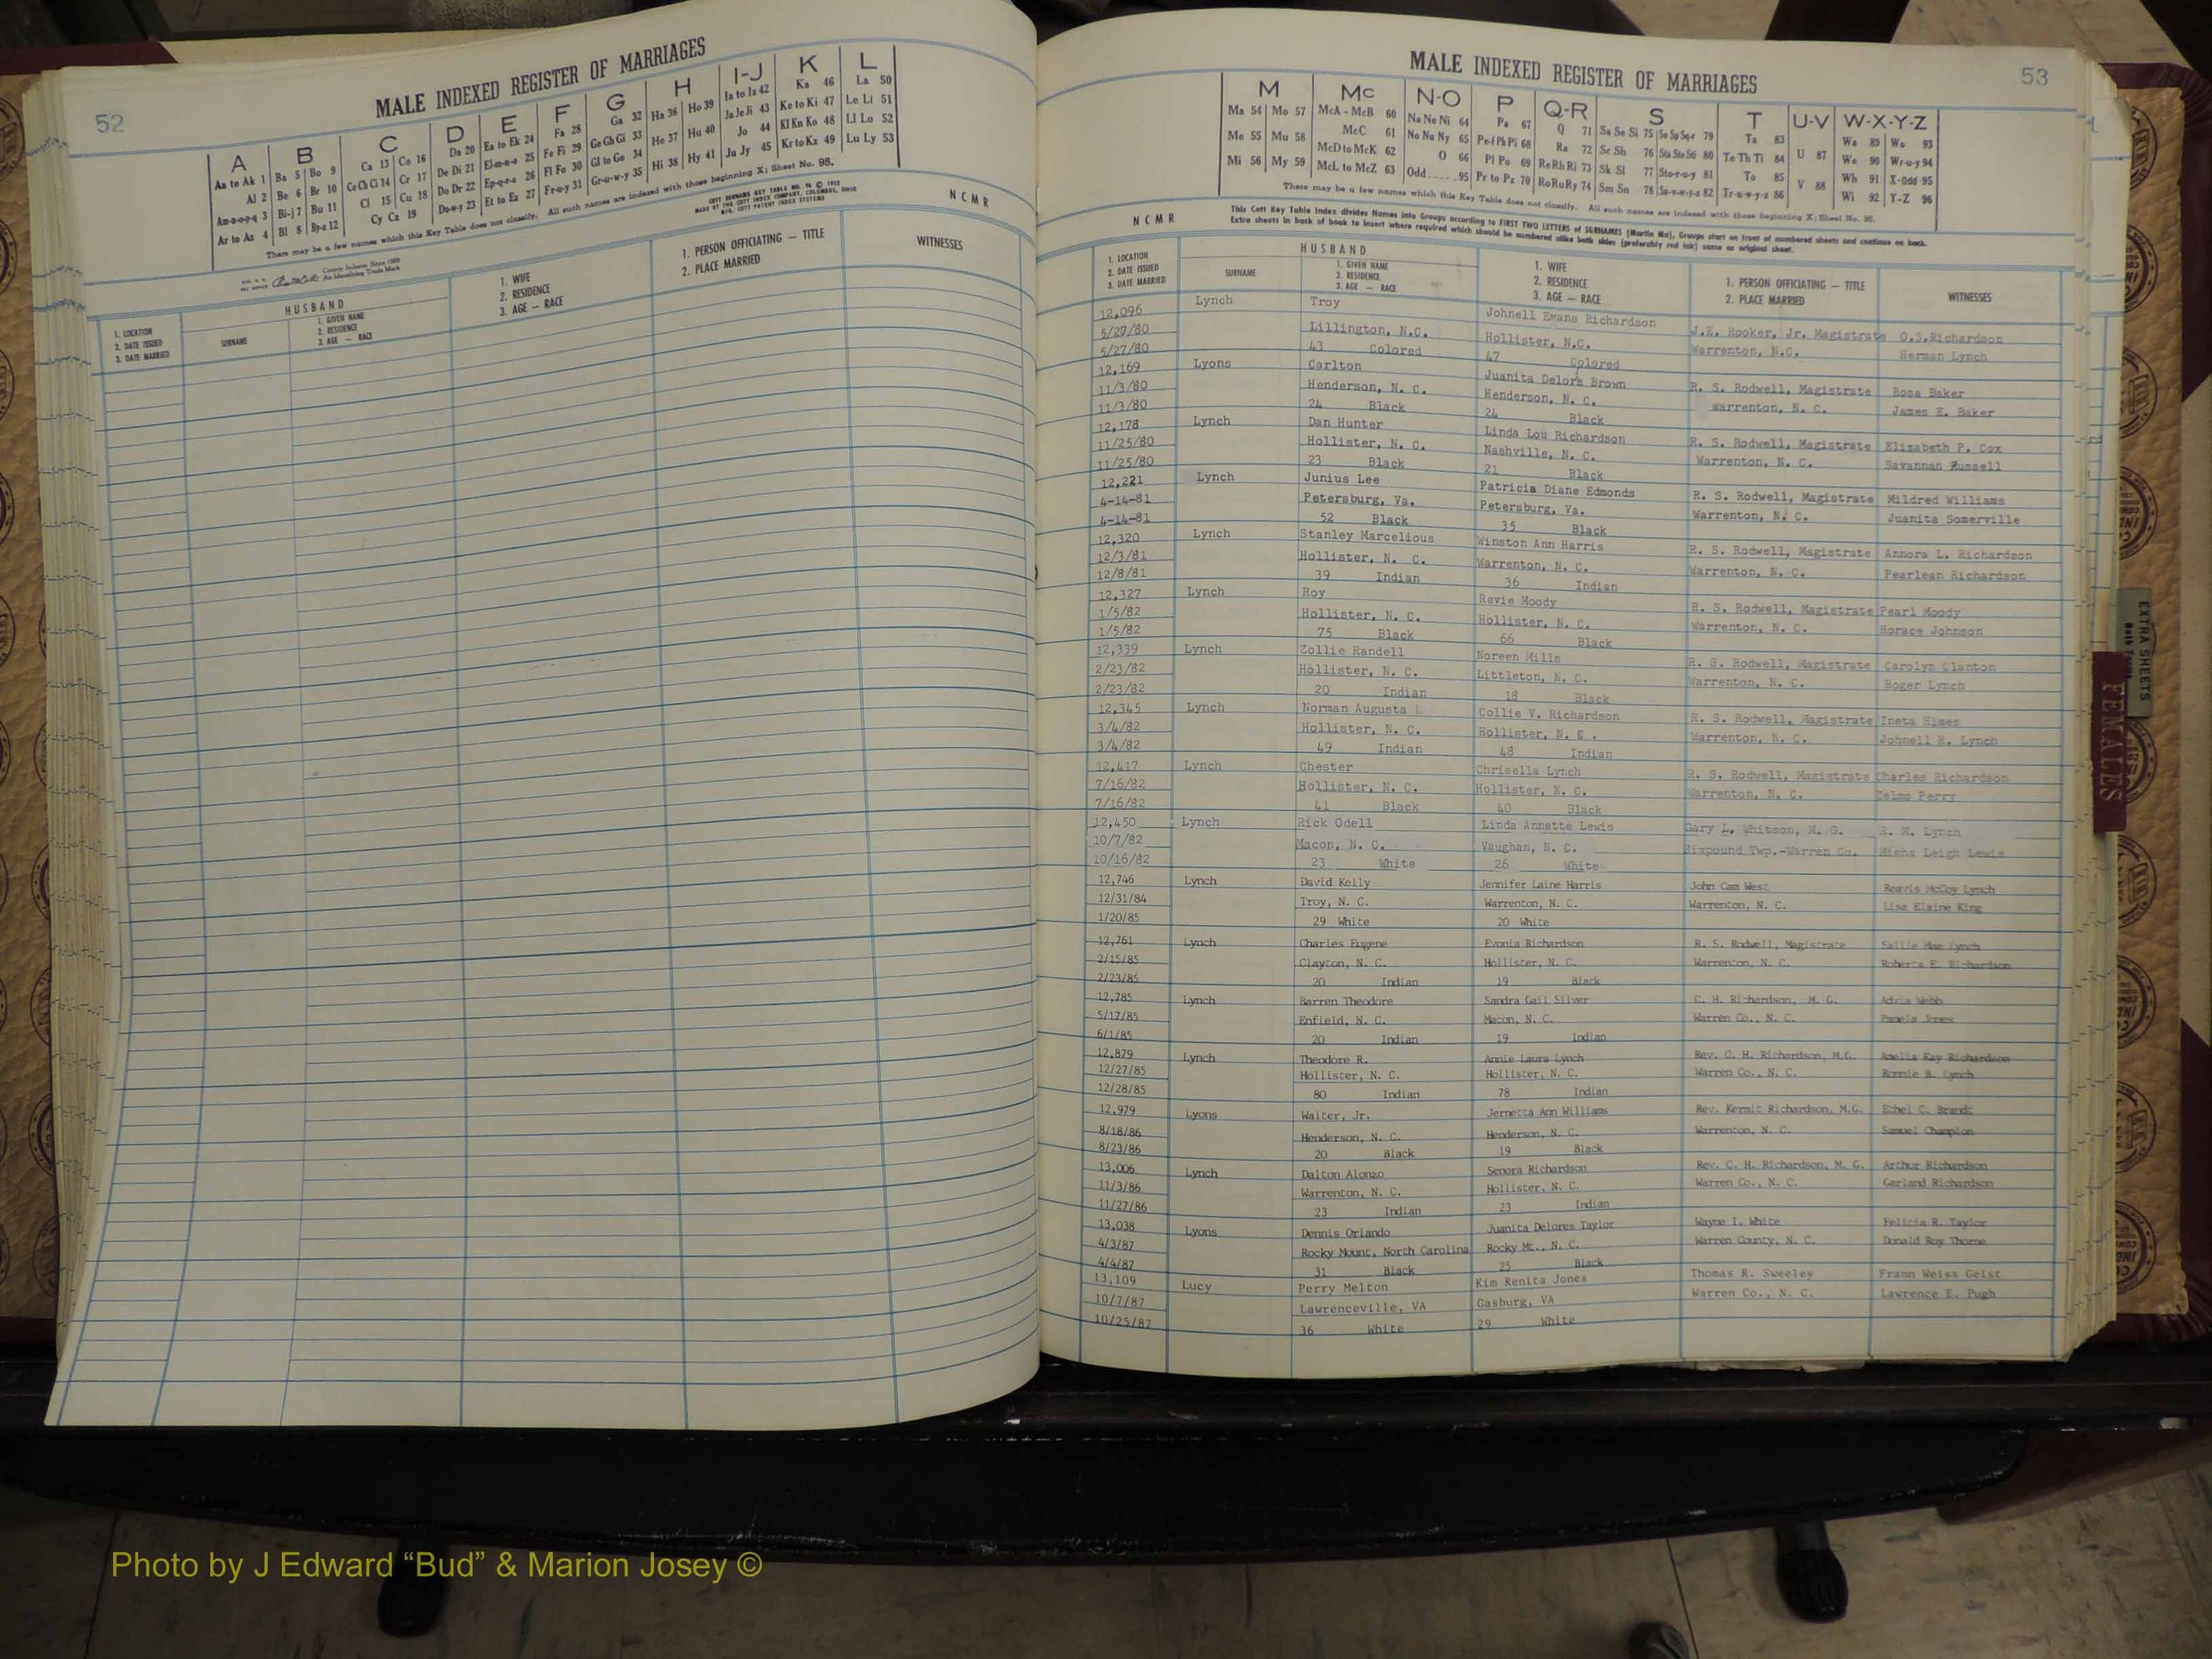 52
MALE INDEXED REGISTER OF MARRIAGES
A B C D E F G H I-J K L
Aa to Ak 1 Ba 5 Bo 9 Ca 13 Co 16 Da 20 Ea to Ek 24 Fa 28 Ga 32 Ha 36 Ho 39 Ia to Iz 42 Ka 46 La 50
Al 2 Be 6 Br 10 Ce Ch Ci 14 Cr 17 De Di 21 El-m-n-o 25 Fe Fi 29 Ge Gh Gi 33 He 37 Hu 40 Ja Je Ji 43 Ke to Ki 47 Le Li 51
Am-n-o-p-q 3 Bi-j 7 Bu 11 Cl 15 Cu 18 Do Dr 22 Ep-q-r-s 26 Fl Fo 30 Gl to Go 34 Hi 38 Hy 41 Jo 44 Kl Kn Ko 48 Ll Lo 52
Ar to Az 4 Bl 8 By-z 12 Cy Cz 19 Du-w-y 23 Et to Ez 27 Fr-o-y 31 Gr-u-w-y 35 Ju Jy 45 Kr to Kz 49 Lu Ly 53
There may be a few names which this Key Table does not classify. All such names are indexed with those beginning X; Sheet No. 95.
COTT SURNAME KEY TABLE NO. 96 © 1952
MADE BY THE COTT INDEX COMPANY, COLUMBUS, OHIO
MFG. COTT PATENT INDEX SYSTEMS
County Indexes Since 1888
An Identifying Trade Mark
NCMR
1. LOCATION
2. DATE ISSUED
3. DATE MARRIED
HUSBAND
SURNAME
1. GIVEN NAME
2. RESIDENCE
3. AGE — RACE
1. WIFE
2. RESIDENCE
3. AGE — RACE
1. PERSON OFFICIATING — TITLE
2. PLACE MARRIED
WITNESSES
MALE INDEXED REGISTER OF MARRIAGES
53
M Mc N-O P Q-R S T U-V W-X-Y-Z
Ma 54 Mo 57 McA - McB 60 Na Ne Ni 64 Pa 67 Q 71 Sa Se Si 75 Su Sp Sq-r 79 Ta 83 U 87 Wa 89 Wo 93
Me 55 Mu 58 McC 61 No Nu Ny 65 Pe-f Ph Pi 68 Ra 72 Sc Sh 76 Sta Ste Sti 80 Te Th Ti 84 We 90 Wr-u-y 94
Mi 56 My 59 McD to McK 62 O 66 Pl Po 69 Re Rh Ri 73 Sk Sl 77 Sto-r-u-y 81 To 85 V 88 Wh 91 X-Odd 95
McL to McZ 63 Odd 95 Pr to Pz 70 Ro Ru Ry 74 Sm Sn 78 Su-v-w-y-z 82 Tr-u-w-y-z 86 Wi 92 Y-Z 96
There may be a few names which this Key Table does not classify. All such names are indexed with those beginning X; Sheet No. 95.
This Cott Key Table Index divides Names into Groups according to FIRST TWO LETTERS of SURNAMES (Martin Ma), Groups start on front of numbered sheets and continue on back.
Extra sheets in back of book to insert where required which should be numbered alike both sides (preferably red ink) same as original sheet.
NCMR
1. LOCATION
2. DATE ISSUED
3. DATE MARRIED
HUSBAND
SURNAME
1. GIVEN NAME
2. RESIDENCE
3. AGE — RACE
1. WIFE
2. RESIDENCE
3. AGE — RACE
1. PERSON OFFICIATING — TITLE
2. PLACE MARRIED
WITNESSES
12,096 Lynch Troy Johnell Evans Richardson J.E. Rooker, Jr. Magistrate O.S.Richardson
5/27/80 Lillington, N.C. Hollister, N.C. Warrenton, N.C. Herman Lynch
5/27/80 43 Colored 47 Colored
12,169 Lyons Carlton Juanita Deloris Brown R. S. Rodwell, Magistrate Rosa Baker
11/3/80 Henderson, N. C. Henderson, N. C. Warrenton, N. C. James E. Baker
11/3/80 24 Black 24 Black
12,178 Lynch Dan Hunter Linda Lou Richardson R. S. Rodwell, Magistrate Elizabeth P. Cox
11/25/80 Hollister, N. C. Nashville, N. C. Warrenton, N. C. Savannah Russell
11/25/80 23 Black 21 Black
12,221 Lynch Junius Lee Patricia Diane Edmonds R. S. Rodwell, Magistrate Mildred Williams
4-14-81 Petersburg, Va. Petersburg, Va. Warrenton, N. C. Juanita Somerville
4-14-81 52 Black 35 Black
12,320 Lynch Stanley Marcelious Winston Ann Harris R. S. Rodwell, Magistrate Annora L. Richardson
12/3/81 Hollister, N. C. Warrenton, N. C. Warrenton, N. C. Pearlean Richardson
12/8/81 39 Indian 36 Indian
12,327 Lynch Roy Revie Moody R. S. Rodwell, Magistrate Pearl Moody
1/5/82 Hollister, N. C. Hollister, N. C. Warrenton, N. C. Horace Johnson
1/5/82 75 Black 66 Black
12,339 Lynch Zollie Randell Noreen Mills R. S. Rodwell, Magistrate Carolyn Clanton
2/23/82 Hollister, N. C. Littleton, N. C. Warrenton, N. C. Roger Lynch
2/23/82 20 Indian 18 Black
12,345 Lynch Norman Augusta Collie V. Richardson R. S. Rodwell, Magistrate Ineta Himes
3/4/82 Hollister, N. C. Hollister, N. C. Warrenton, N. C. Johnell R. Lynch
3/4/82 49 Indian 48 Indian
12,417 Lynch Chester Chrisella Lynch R. S. Rodwell, Magistrate Charles Richardson
7/16/82 Hollister, N. C. Hollister, N. C. Warrenton, N. C. Zelmo Perry
7/16/82 41 Black 40 Black
12,450 Lynch Rick Odell Linda Annette Lewis Gary L. Whitson, M. G. R. M. Lynch
10/7/82 Macon, N. C. Vaughan, N. C. Sixpound Twp.-Warren Co. Leigh Lewis
10/16/82 23 White 26 White
12,746 Lynch David Kelly Jennifer Laine Harris John Cam West Reavis McCoy Lynch
12/31/84 Troy, N. C. Warrenton, N. C. Warrenton, N. C. Lisa Elaine King
1/20/85 29 White 20 White
12,761 Lynch Charles Eugene Evonia Richardson R. S. Rodwell, Magistrate Sallie Mae Lynch
2/15/85 Clayton, N. C. Hollister, N. C. Warrenton, N. C. Roberta E. Richardson
2/23/85 20 Indian 19 Black
12,785 Lynch Barren Theodore Sandra Gail Silver C. H. Richardson, M. G. Adria Webb
5/17/85 Enfield, N. C. Macon, N. C. Warren Co., N. C. Pamela Jones
6/1/85 20 Indian 19 Indian
12,879 Lynch Theodore R. Annie Laura Lynch Rev. C. H. Richardson, M.G. Amelia Kay Richardson
12/27/85 Hollister, N. C. Hollister, N. C. Warren Co., N. C. Ronnie B. Lynch
12/28/85 80 Indian 78 Indian
12,979 Lyons Walter, Jr. Jernetta Ann Williams Rev. Kermit Richardson, M.G. Ethel C. Brandt
8/18/86 Henderson, N. C. Henderson, N. C. Warrenton, N. C. Samuel Champion
8/23/86 20 Black 19 Black
13,006 Lynch Dalton Alonzo Senora Richardson Rev. C. H. Richardson, M. G. Arthur Richardson
11/3/86 Warrenton, N. C. Hollister, N. C. Warren Co., N. C. Garland Richardson
11/27/86 23 Indian 23 Indian
13,038 Lyons Dennis Orlando Juanita Delores Taylor Wayne I. White Felicia R. Taylor
4/3/87 Rocky Mount, North Carolina Rocky Mt., N. C. Warren County, N. C. Donald Roy Thorne
4/4/87 31 Black 25 Black
13,109 Lucy Perry Melton Kim Renita Jones Thomas R. Sweeley Frann Weiss Geist
10/7/87 Lawrenceville, VA Gasburg, VA Warren Co., N. C. Lawrence E. Pugh
10/25/87 36 White 29 White
EXTRA SHEETS
FEMALES
Photo by J Edward “Bud” & Marion Josey ©